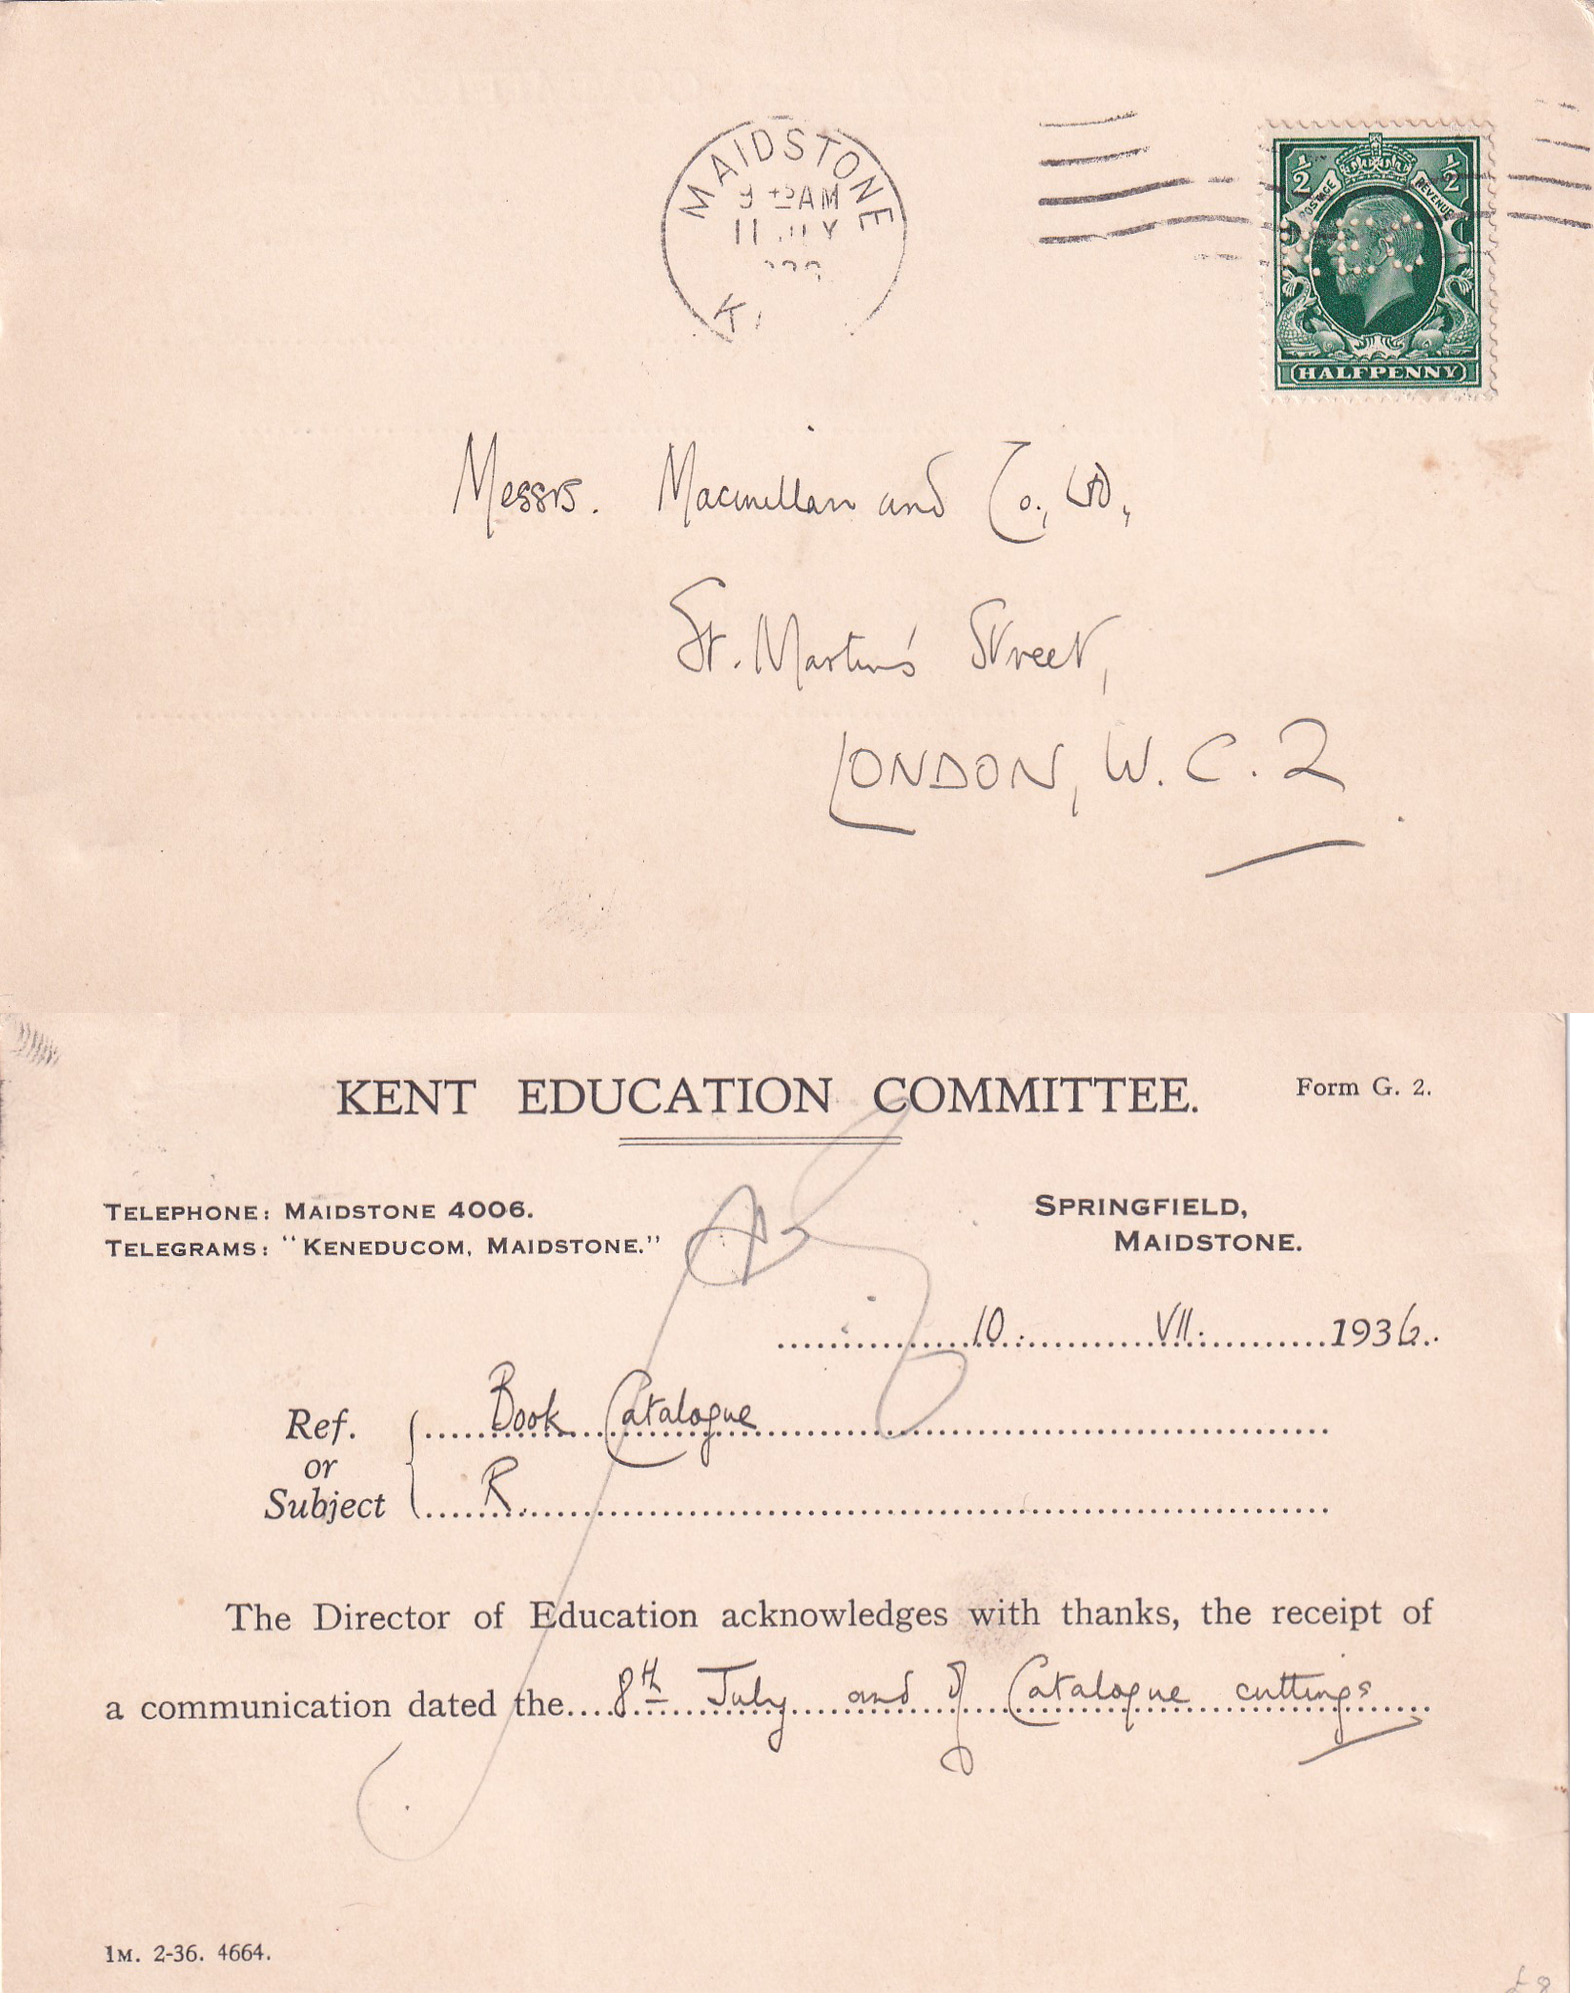 MAIDSTONE
AM
11
K
½ ½
POSTAGE REVENUE
HALFPENNY
Messrs. Macmillan and Co., Ltd,
St. Martin's Street,
LONDON, W.C.2
KENT EDUCATION COMMITTEE. Form G. 2.
TELEPHONE: MAIDSTONE 4006. SPRINGFIELD,
TELEGRAMS: "KENEDUCOM, MAIDSTONE." MAIDSTONE.
10. VII. 1936.
Ref. Book Catalogue
or
Subject R.
The Director of Education acknowledges with thanks, the receipt of
a communication dated the 8th July and of Catalogue cuttings
1M. 2-36. 4664.
£8